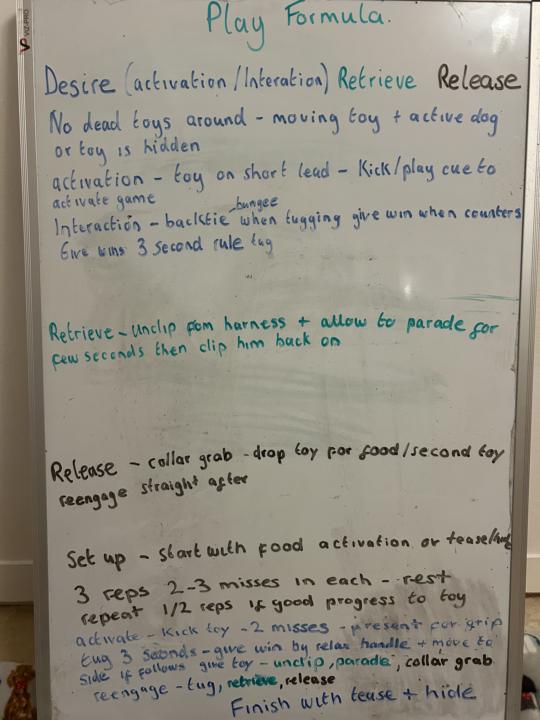 VIZ-PRO
Play Formula.
Desire (activation/Interation) Retrieve Release
No dead toys around - moving toy + active dog
or toy is hidden
activation - toy on short lead - Kick/play cue to
activate game
bungee
Interaction - backtie when tugging give win when counters
Give wins 3 second rule tug
Retrieve - unclip from harness + allow to parade for
few seconds then clip him back on
Release - collar grab - drop toy for food/second toy
reengage straight after
Set up - Start with food activation or tease/
3 reps 2-3 misses in each - rest
repeat 1/2 reps if good progress to toy
activate - Kick toy - 2 misses - present for grip
tug 3 seconds - give win by relax handle + move to
side if follows give toy - unclip, parade, collar grab
reengage - tug, retrieve, release
Finish with tease + hide